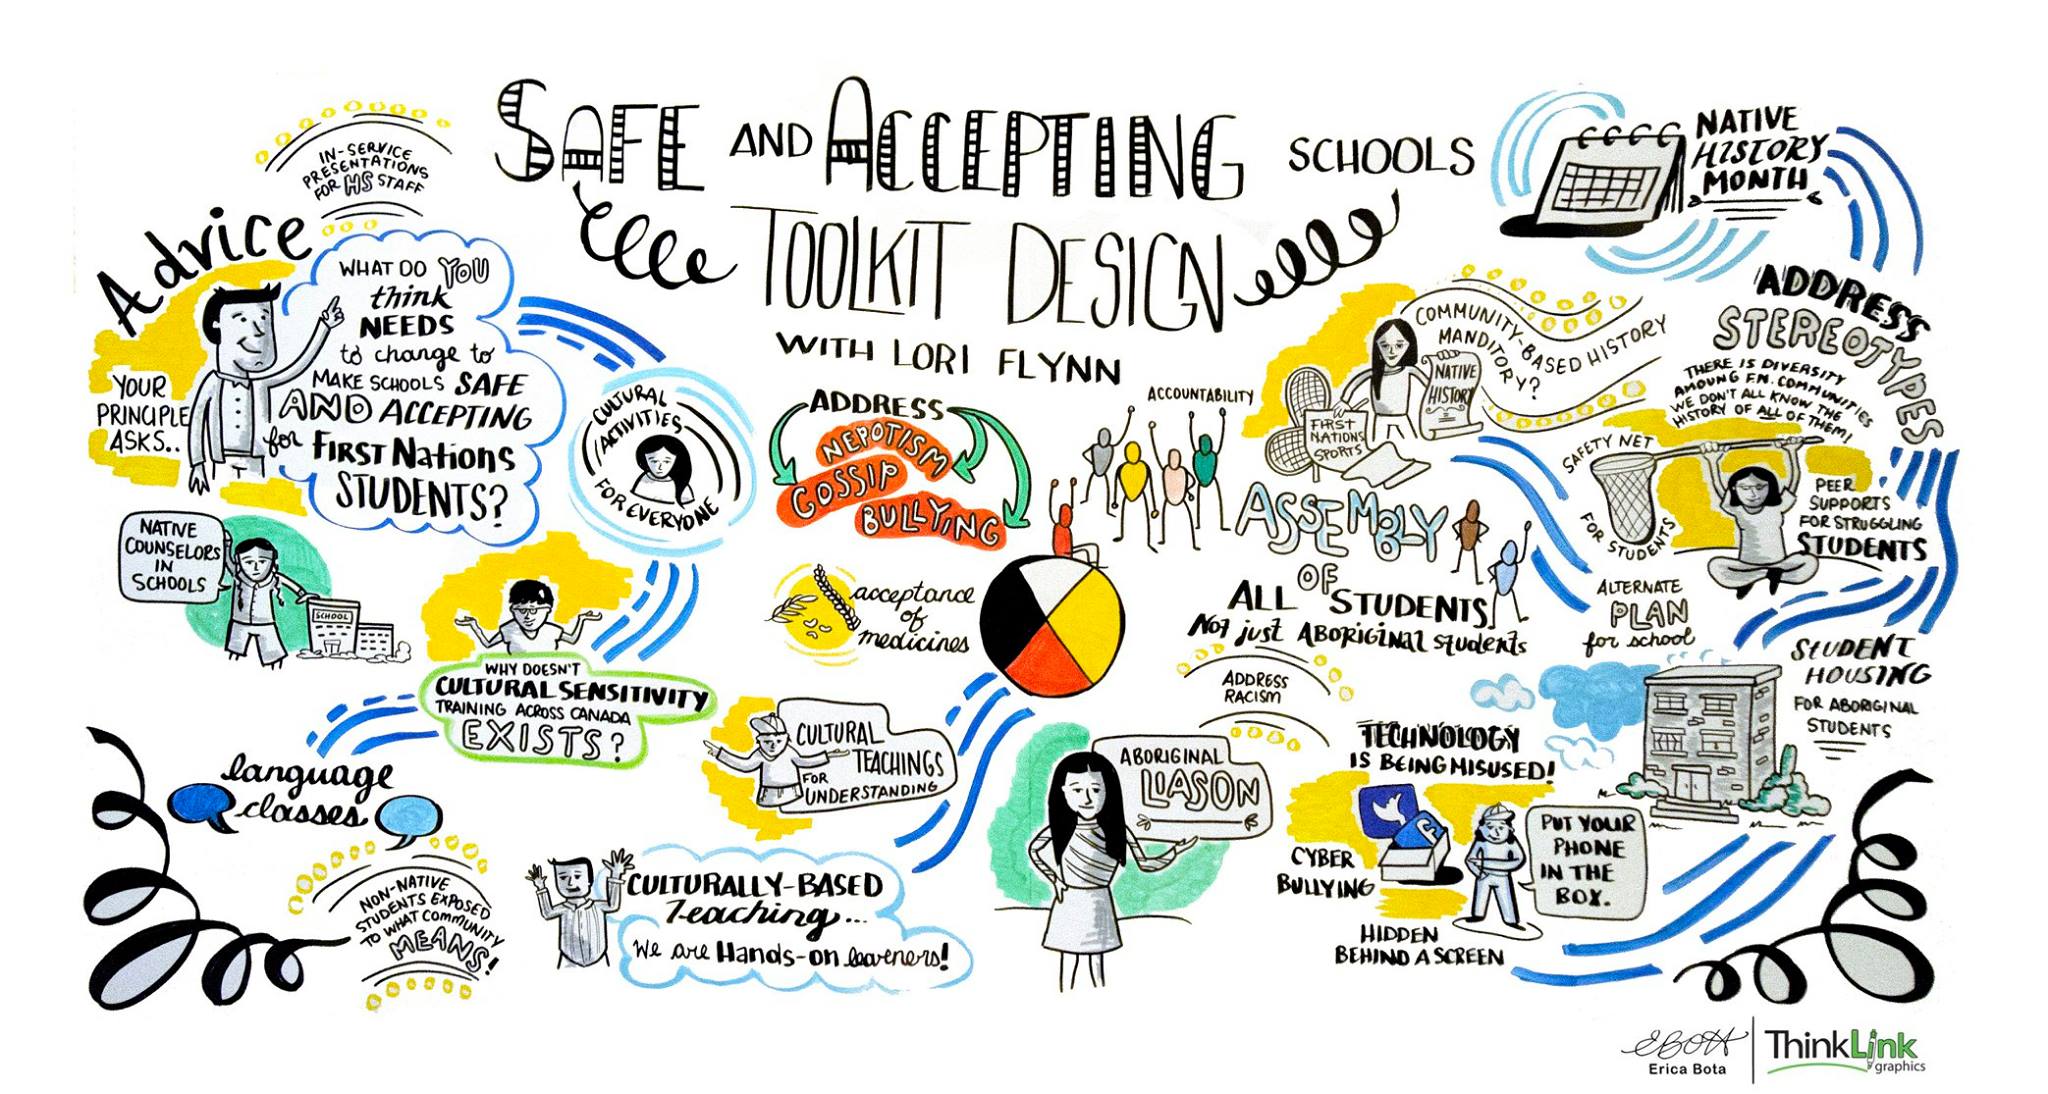 SAFE AND ACCEPTING SCHOOLS
TOOLKIT DESIGN
WITH LORI FLYNN
IN-SERVICE
PRESENTATIONS
FOR HS STAFF
Advice
YOUR
PRINCIPLE
ASKS..
WHAT DO YOU
think
NEEDS
to change to
MAKE SCHOOLS SAFE
AND ACCEPTING
for FIRST NATIONS
STUDENTS?
NATIVE
COUNSELORS
IN
SCHOOLS
SCHOOL
CULTURAL
ACTIVITIES
FOR EVERYONE
WHY DOESN'T
CULTURAL SENSITIVITY
TRAINING ACROSS CANADA
EXISTS?
language
classes
NON-NATIVE
STUDENTS EXPOSED
TO WHAT COMMUNITY
MEANS!
CULTURALLY-BASED
Teaching...
We are Hands-on learners!
CULTURAL
TEACHINGS
FOR
UNDERSTANDING
ADDRESS
NEPOTISM
GOSSIP
BULLYING
acceptance
of
medicines
ACCOUNTABILITY
ASSEMBLY
OF
ALL STUDENTS
Not just ABORIGINAL students
ADDRESS
RACISM
ABORIGINAL
LIASON
FIRST
NATIONS
SPORTS
NATIVE
HISTORY
COMMUNITY-BASED HISTORY
MANDITORY?
NATIVE
HISTORY
MONTH
ADDRESS
STEREOTYPES
THERE IS DIVERSITY
AMOUNG F.N. COMMUNITIES
WE DON'T ALL KNOW THE
HISTORY OF ALL OF THEM!
SAFETY NET
FOR STUDENTS
PEER
SUPPORTS
FOR STRUGGLING
STUDENTS
ALTERNATE
PLAN
for school
STUDENT
HOUSING
FOR ABORIGINAL
STUDENTS
TECHNOLOGY
IS BEING MISUSED!
CYBER
BULLYING
HIDDEN
BEHIND A SCREEN
PUT YOUR
PHONE
IN THE
BOX.
EBOTA
Erica Bota
ThinkLink
graphics